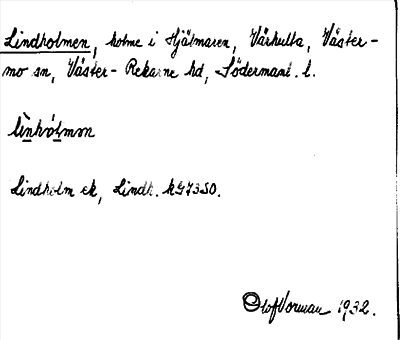 Lindholmen, holme i Hjälmaren, Vårhulta, Väster-
mo sn, Väster-Rekarne hd, Södermanl. l.
linhólmon
Lindholm ek, Lindh. kG7350.
Olof Vorman 1932.